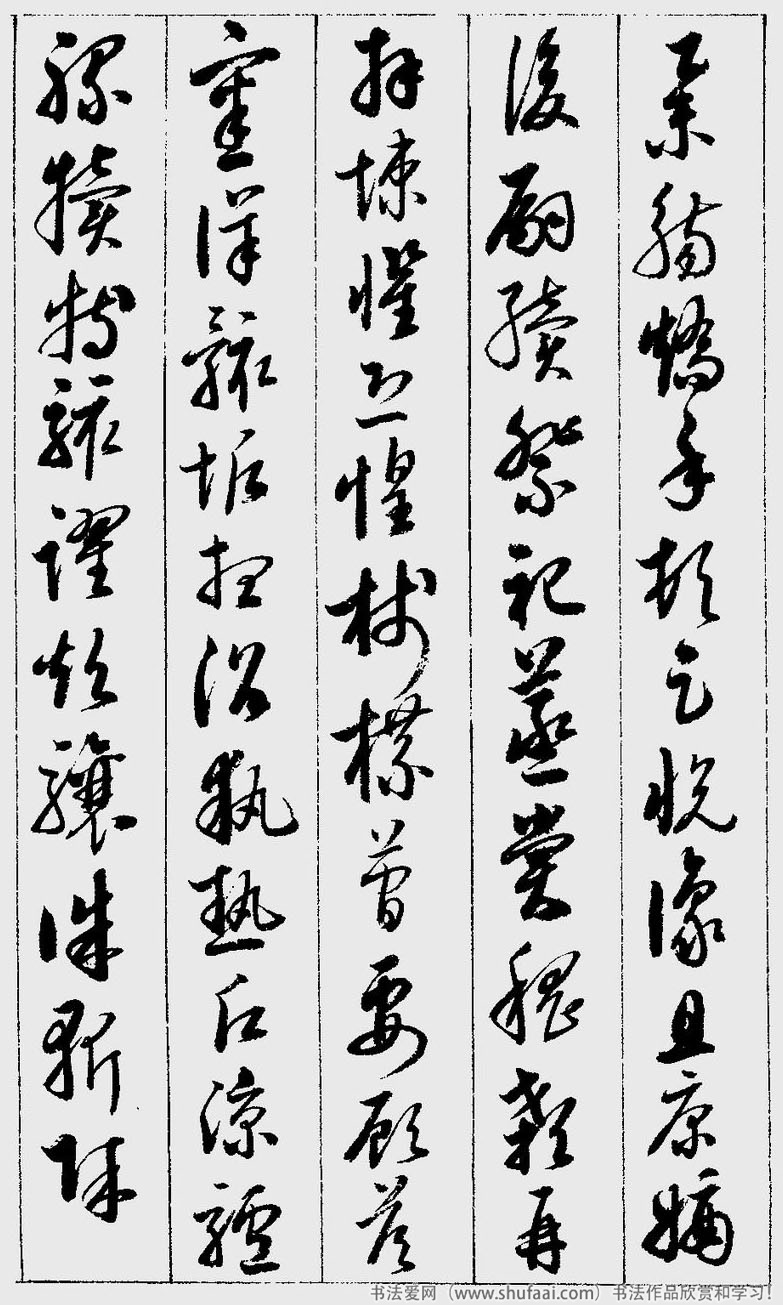 舉觴矯手頓足悅豫且康嫡
後嗣續祭祀蒸嘗稽顙再
拜悚懼恐惶牋牒簡要顧答
審詳骸垢想浴執熱願涼驢
騾犢特駭躍超驤誅斬賊
书法爱网（www.shufaai.com）书法作品欣赏和学习！